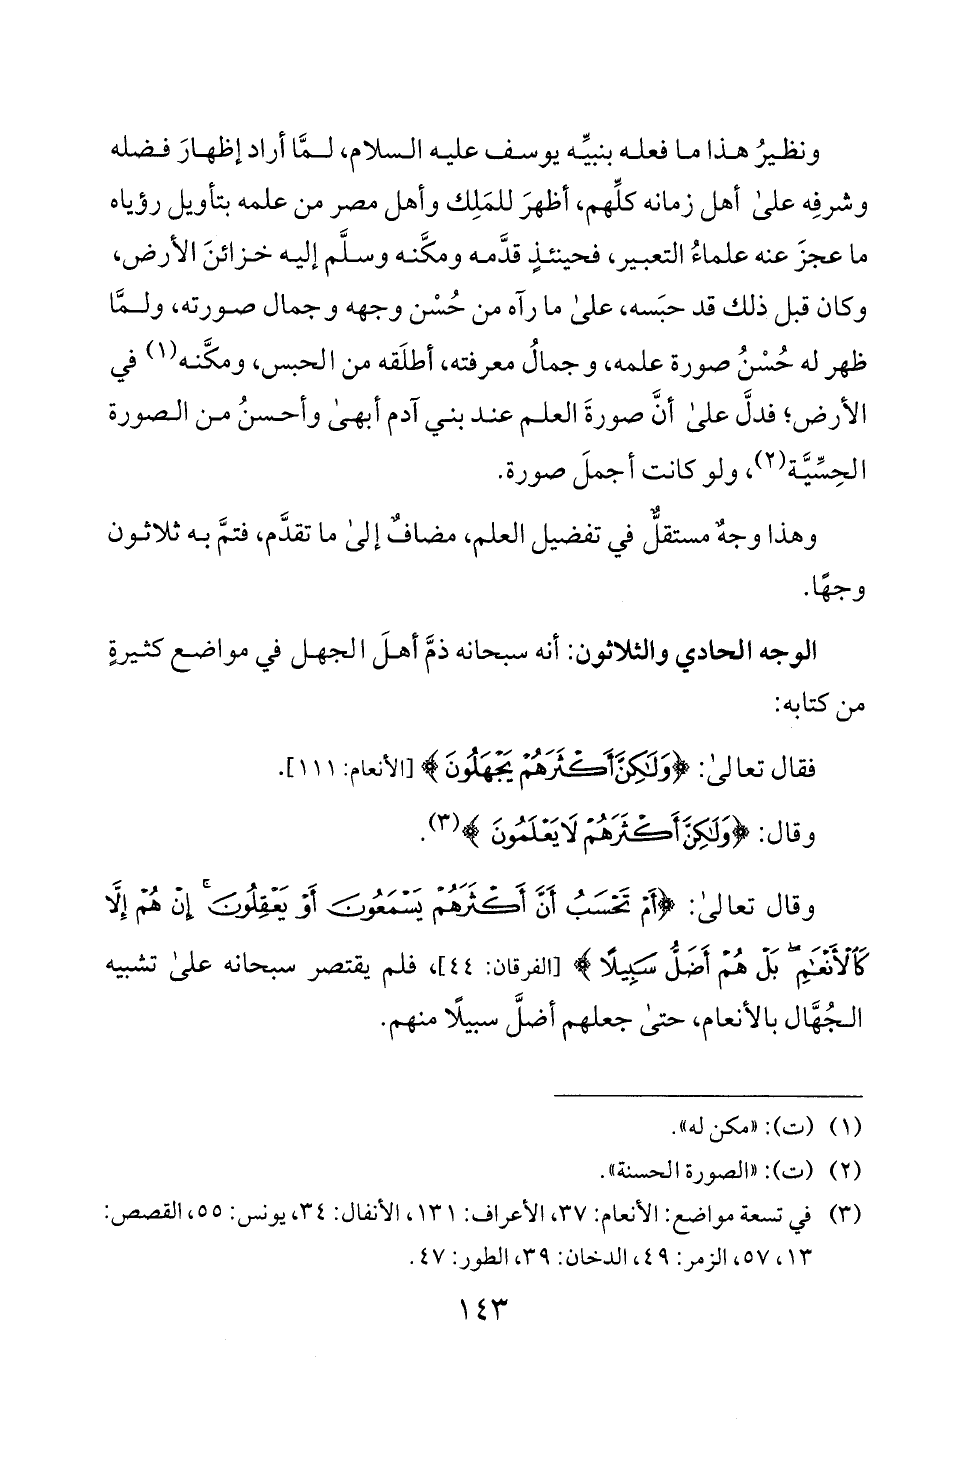 ونظيرُ هذا ما فعله بنبيِّه يوسف عليه السلام، لمَّا أراد إظهارَ فضله
وشرفِه علىٰ أهل زمانه كلِّهم، أظهرَ للمَلِك وأهل مصر من علمه بتأويل رؤياه
ما عجزَ عنه علماءُ التعبير، فحينئذٍ قدَّمه ومكَّنه وسلَّم إليه خزائنَ الأرض،
وكان قبل ذلك قد حبَسه، علىٰ ما رآه من حُسْن وجهه وجمال صورته، ولمَّا
ظهر له حُسْنُ صورة علمه، وجمالُ معرفته، أطلَقه من الحبس، ومكَّنه(١) في
الأرض؛ فدلَّ علىٰ أنَّ صورةَ العلم عند بني آدم أبهىٰ وأحسنُ من الصورة
الحِسِّيَّة(٢)، ولو كانت أجملَ صورة.
وهذا وجهٌ مستقلٌّ في تفضيل العلم، مضافٌ إلىٰ ما تقدَّم، فتمَّ به ثلاثون
وجهًا.
الوجه الحادي والثلاثون: أنه سبحانه ذمَّ أهلَ الجهل في مواضع كثيرةٍ
من كتابه:
فقال تعالىٰ: ﴿وَلَٰكِنَّ أَكْثَرَهُمْ يَجْهَلُونَ﴾ [الأنعام: ١١١].
وقال: ﴿وَلَٰكِنَّ أَكْثَرَهُمْ لَا يَعْلَمُونَ﴾(٣).
وقال تعالىٰ: ﴿أَمْ تَحْسَبُ أَنَّ أَكْثَرَهُمْ يَسْمَعُونَ أَوْ يَعْقِلُونَ ۚ إِنْ هُمْ إِلَّا
كَالْأَنْعَٰمِ ۖ بَلْ هُمْ أَضَلُّ سَبِيلًا﴾ [الفرقان: ٤٤]، فلم يقتصر سبحانه علىٰ تشبيه
الجُهَّال بالأنعام، حتىٰ جعلهم أضلَّ سبيلًا منهم.
(١) (ت): «مكن له».
(٢) (ت): «الصورة الحسنة».
(٣) في تسعة مواضع: الأنعام: ٣٧، الأعراف: ١٣١، الأنفال: ٣٤، يونس: ٥٥، القصص:
١٣، ٥٧، الزمر: ٤٩، الدخان: ٣٩، الطور: ٤٧.
١٤٣